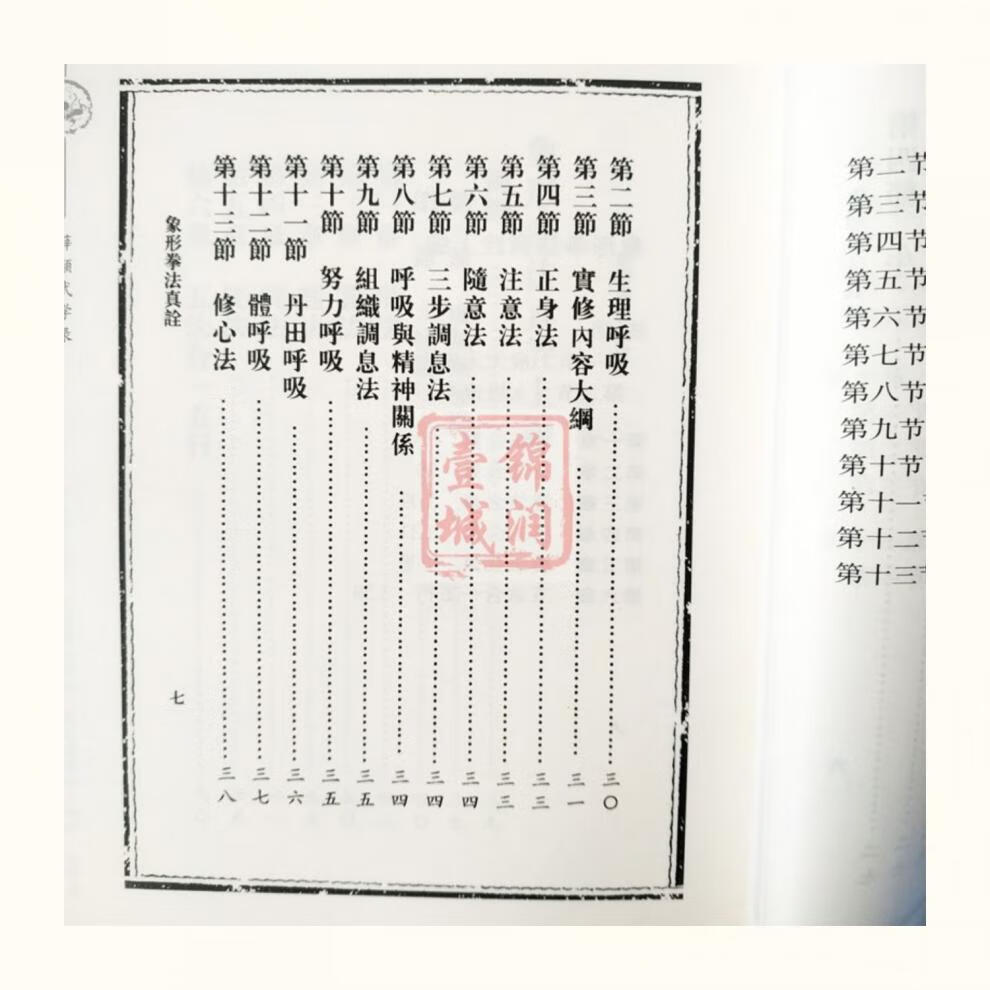 第二節 生理呼吸 三〇
第三節 實修內容大綱 三一
第四節 正身法 三三
第五節 注意法 三三
第六節 隨意法 三四
第七節 三步調息法 三四
第八節 呼吸與精神關係 三四
第九節 組織調息法 三五
第十節 努力呼吸 三五
第十一節 丹田呼吸 三六
第十二節 體呼吸 三七
第十三節 修心法 三八
象形拳法真詮
七
錦润
壹城
第二节
第三节
第四节
第五节
第六节
第七节
第八节
第九节
第十节
第十一
第十二
第十三